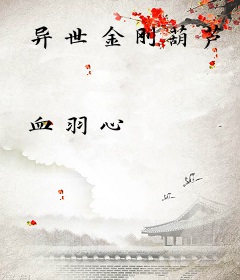 异世金刚葫芦
血羽心